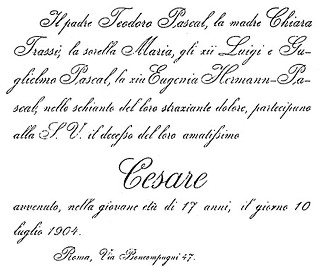 Il padre Teodoro Pascal, la madre Chiara
Trassi, la sorella Maria, gli zii Luigi e Gu-
glielmo Pascal, la zia Eugenia Hermann-Pa-
scal, nello schianto del loro straziante dolore, partecipano
alla S. V. il decesso del loro amatissimo
Cesare
avvenuto, nella giovane età di 17 anni, il giorno 10
luglio 1904.
Roma, Via Boncompagni 47.